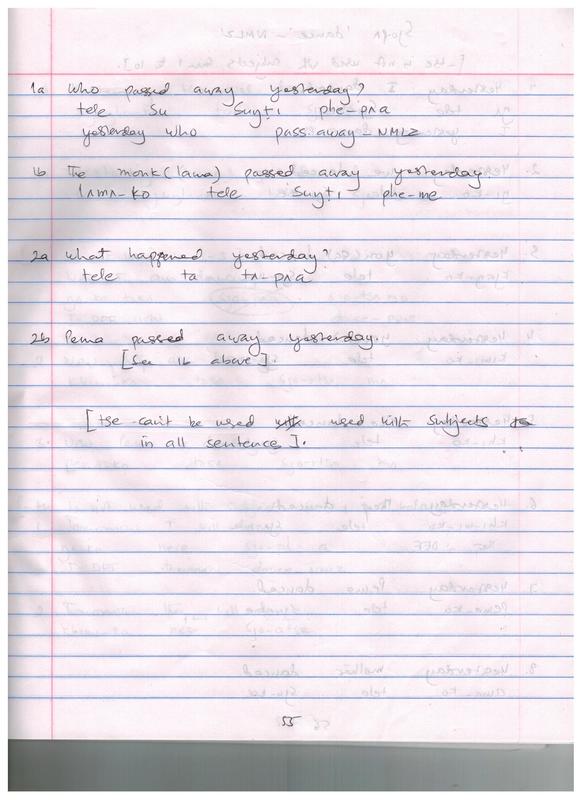 1a Who passed away yesterday?
tele su suŋti phe-pʌa
yesterday who pass.away-NMLZ
1b The monk (lama) passed away yesterday.
lʌmʌ-ko tele suŋti phe-me
2a What happened yesterday?
tele ta tʌ-pʌa
2b Pema passed away yesterday.
[See 1b above].
[tse can't be used used with subjects
in all sentence].
55